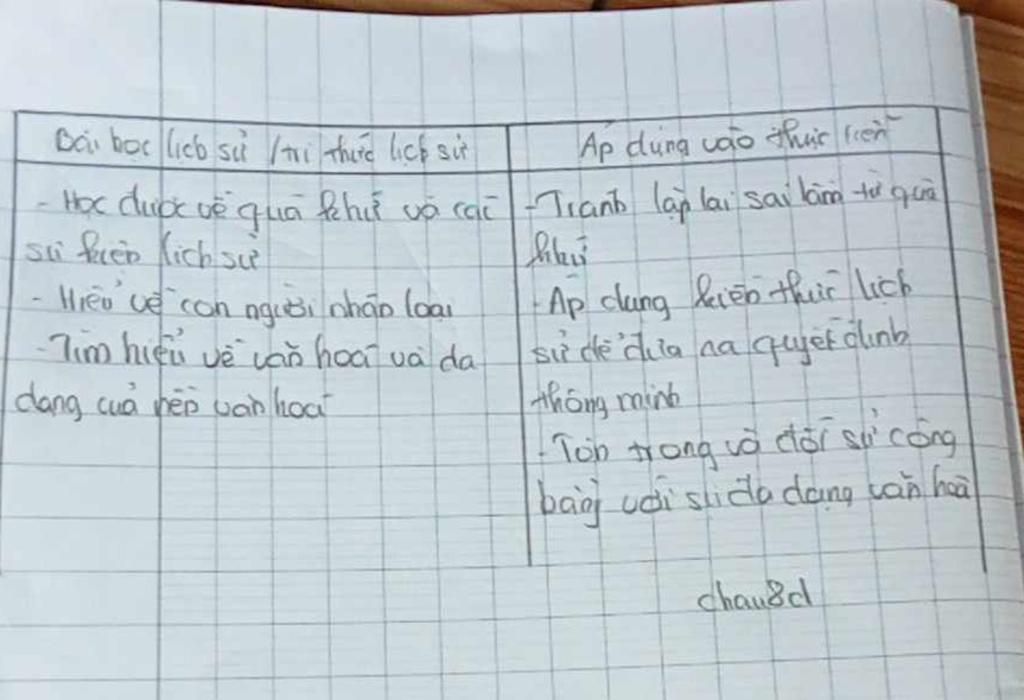 Bài học lịch sử / tri thức lịch sử
Áp dụng vào thực tiễn
- Học được về quá khứ và các
sự kiện lịch sử
- Hiểu về con người nhân loại
- Tìm hiểu về văn hoá và đa
dạng của nền văn hoá
- Tránh lặp lại sai lầm từ quá
khứ
- Áp dụng kiến thức lịch
sử để đưa na quyết định
thông minh
- Tôn trọng và đối sử công
bằng với sự đa dạng văn hoá
chau8d